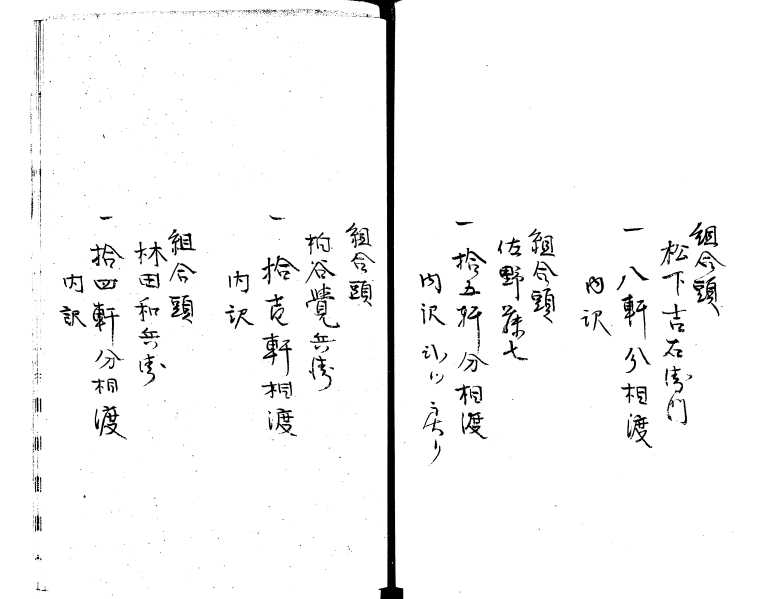 組合頭
松下吉右衛門
一 八軒分相渡
内訳
組合頭
佐野藤七
一 拾五軒分相渡
内訳 戻り
組合頭
柏谷覺兵衛
一 拾壱軒相渡
内訳
組合頭
林田和兵衛
一 拾四軒分相渡
内訳